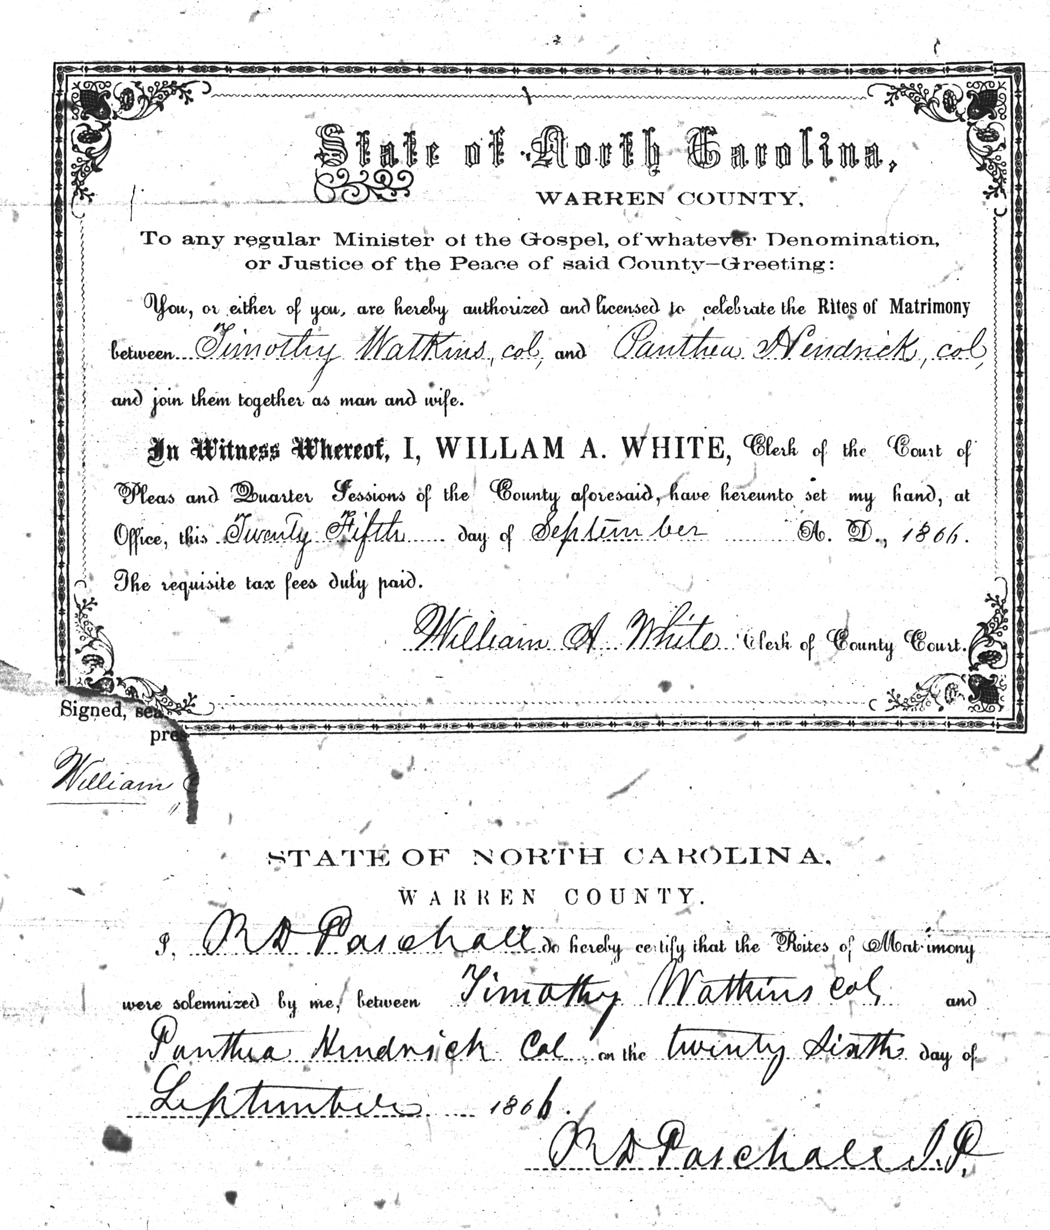 State of North Carolina,
WARREN COUNTY,
To any regular Minister of the Gospel, of whatever Denomination,
or Justice of the Peace of said County—Greeting:
You, or either of you, are hereby authorized and licensed to celebrate the Rites of Matrimony
between Timothy Watkins, col, and Panthea Hendrick, col,
and join them together as man and wife.
In Witness Whereof, I, WILLAM A. WHITE, Clerk of the Court of
Pleas and Quarter Sessions of the County aforesaid, have hereunto set my hand, at
Office, this Twenty Fifth day of September A. D., 1866.
The requisite tax fees duly paid.
William A White Clerk of County Court.
Signed, sea
pres
William
STATE OF NORTH CAROLINA,
WARREN COUNTY.
I, R D Paschall do hereby certify that the Rites of Matrimony
were solemnized by me, between Timothy Watkins Col, and
Panthea Hendrick Col on the twenty Sixth day of
September 1866.
R D Paschall J.P.